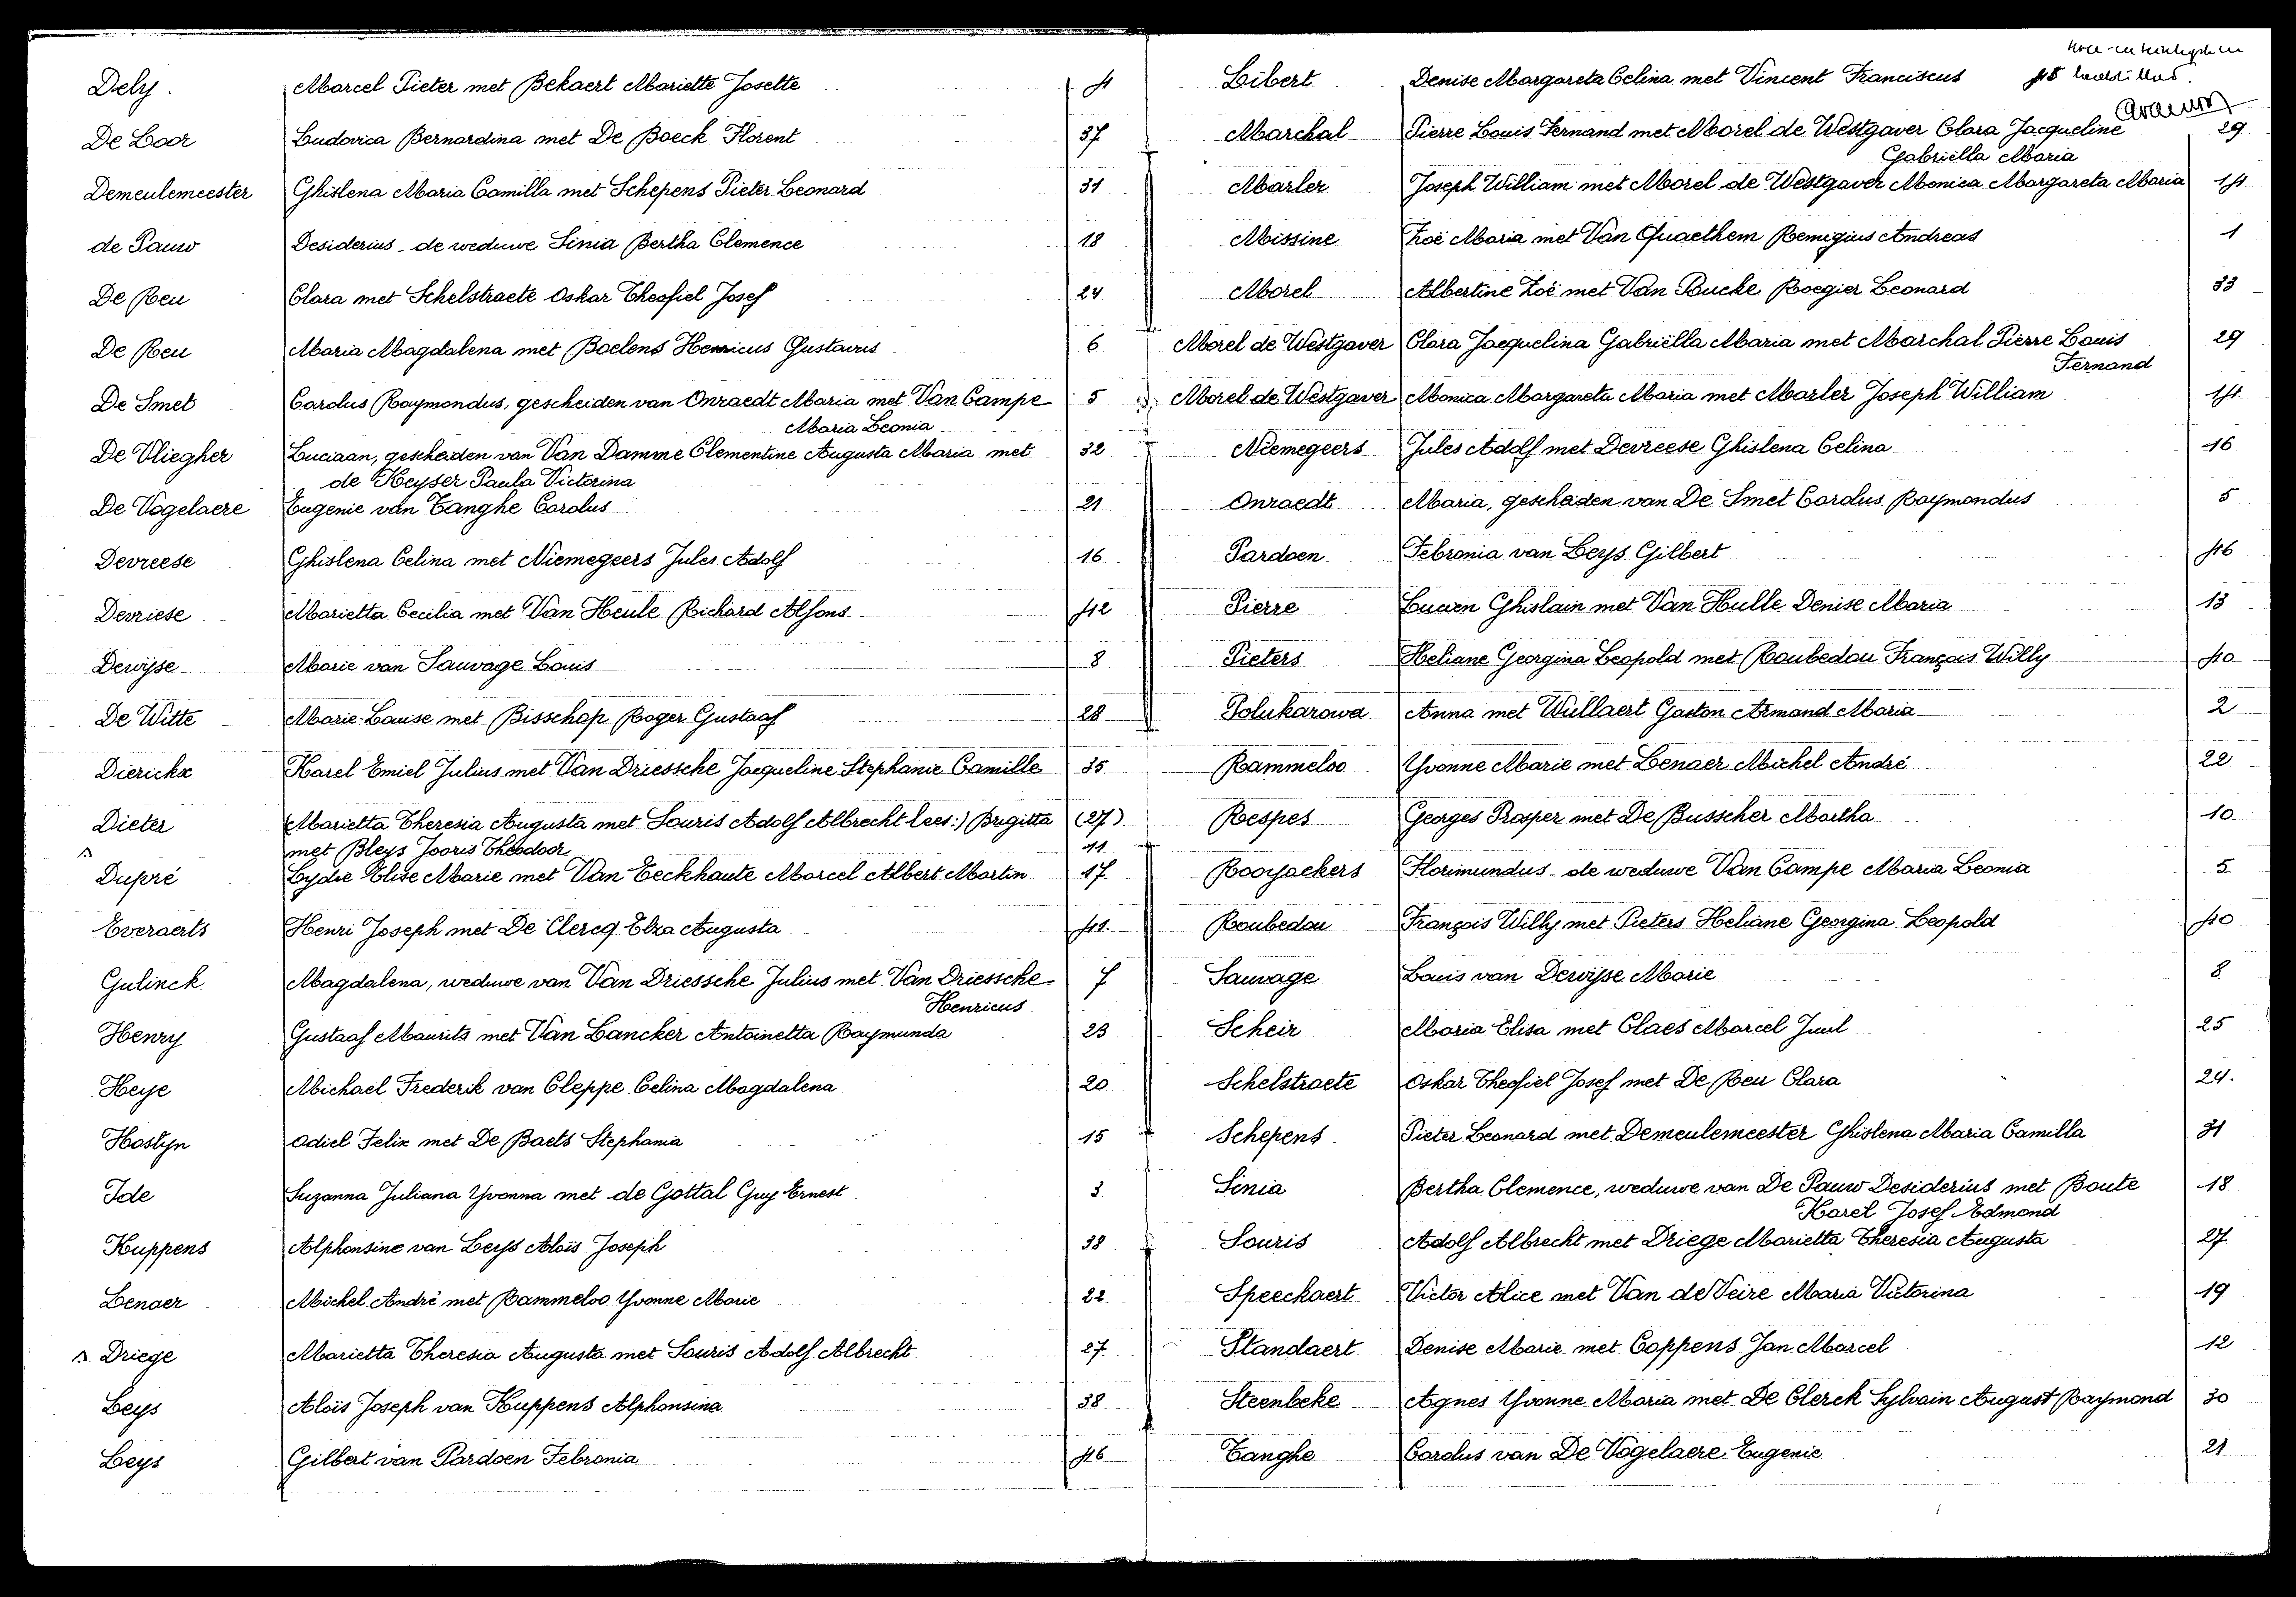 Dely. Marcel Pieter met Bekaert Mariette Josette 4
De Loor Ludovica Bernardina met De Boeck Florent 37
Demeulemeester Ghislena Maria Camilla met Schepens Pieter Leonard 31
de Pauw Desiderius - de weduwe Sinia Bertha Clemence 18
De Reu Clara met Schelstraete Oskar Theofiel Josef 24
De Reu Maria Magdalena met Boelens Henricus Gustavus 6
De Smet Carolus Raymondus, gescheiden van Onraedt Maria met Van Campe 5
Maria Leonia
De Vliegher Luciaan, gescheiden van Van Damme Clementine Augusta Maria met 32
de Keyser Paula Victorina
De Vogelaere Eugenie van Tanghe Carolus 21
Devreese Ghislena Celina met Niemegeers Jules Adolf 16
Devriese Marietta Cecilia met Van Heule Richard Alfons 42
Dewijse Marie van Sauvage Louis 8
De Witte Marie-Louise met Bisschop Roger Gustaaf 28
Dierickx Karel Emiel Julius met Van Driessche Jacqueline Stephanie Camille 35
Dieter Marietta Theresia Augusta met Souris Adolf Albrecht lees:) Brigitta (27)
met Bleys Jooris Theodoor 11
Dupré Lydie Elise Marie met Van Eeckhaute Marcel Albert Martin 17
Everaerts Henri Joseph met De Clercq Elza Augusta 41.
Gulinck Magdalena, weduwe van Van Driessche Julius met Van Driessche 7
Henricus
Henry Gustaaf Maurits met Van Lancker Antoinetta Raymunda 23
Heye Michael Frederik van Cleppe Celina Magdalena 20
Hostyn Odiel Felix met De Baets Stephania 15
Ide Suzanna Juliana Yvonna met de Gottal Guy Ernest 3
Kuppens Alphonsine van Leys Aloïs Joseph 38
Lenaer Michel André met Rammeloo Yvonne Marie 22
Driege Marietta Theresia Augusta met Souris Adolf Albrecht 27
Leys Aloïs Joseph van Kuppens Alphonsina 38
Leys Gilbert van Pardoen Febronia 46
Libert Denise Margareta Celina met Vincent Franciscus 45
Marchal Pierre Louis Fernand met Morel de Westgaver Clara Jacqueline 29
Gabriëlla Maria
Marler Joseph William met Morel de Westgaver Monica Margareta Maria 14
Missine Zoë Maria met Van Quaethem Remigius Andreas 1
Morel Albertine Zoë met Van Bucke Roegier Leonard 33
Morel de Westgaver Clara Jacquelina Gabriëlla Maria met Marchal Pierre Louis 29
Fernand
Morel de Westgaver Monica Margareta Maria met Marler Joseph William 14
Niemegeers Jules Adolf met Devreese Ghislena Celina 16
Onraedt Maria, gescheiden van De Smet Carolus Raymondus 5
Pardoen Febronia van Leys Gilbert 46
Pierre Lucien Ghislain met Van Hulle Denise Maria 13
Pieters Heliane Georgina Leopold met Roubedou François Willy 40
Polukarowa Anna met Wullaert Gaston Armand Maria 2
Rammeloo Yvonne Marie met Lenaer Michel André 22
Respes Georges Prosper met De Busscher Martha 10
Rooyackers Florimundus - de weduwe Van Campe Maria Leonia 5
Roubedou François Willy met Pieters Heliane Georgina Leopold 40
Sauvage Louis van Dewijse Marie 8
Scheir Maria Elisa met Claes Marcel Juul 25
Schelstraete Oskar Theofiel Josef met De Reu Clara 24.
Schepens Pieter Leonard met Demeulemeester Ghislena Maria Camilla 31
Sinia Bertha Clemence, weduwe van De Pauw Desiderius met Boute 18
Karel Josef Edmond
Souris Adolf Albrecht met Driege Marietta Theresia Augusta 27
Speeckaert Victor Alice met Van de Veire Maria Victorina 19
Standaert Denise Marie met Coppens Jan Marcel 12
Steenbeke Agnes Yvonne Maria met De Clerck Sylvain August Raymond 30
Tanghe Carolus van De Vogelaere Eugenie 21